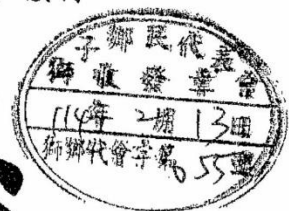 獅子鄉民代表會
收發章
114年2月13日
獅鄉代會字第055號